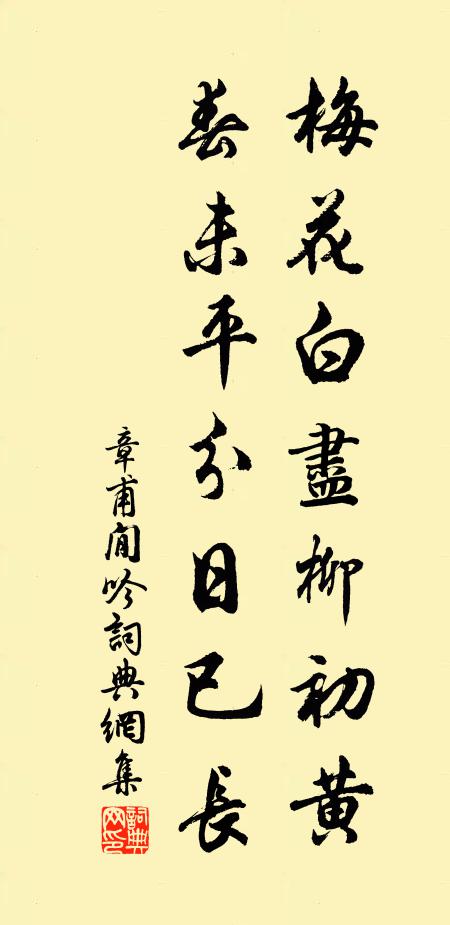 梅花白盡柳初黄
春未平分日已長
章甫閒吟詞典網集
詞典
网印